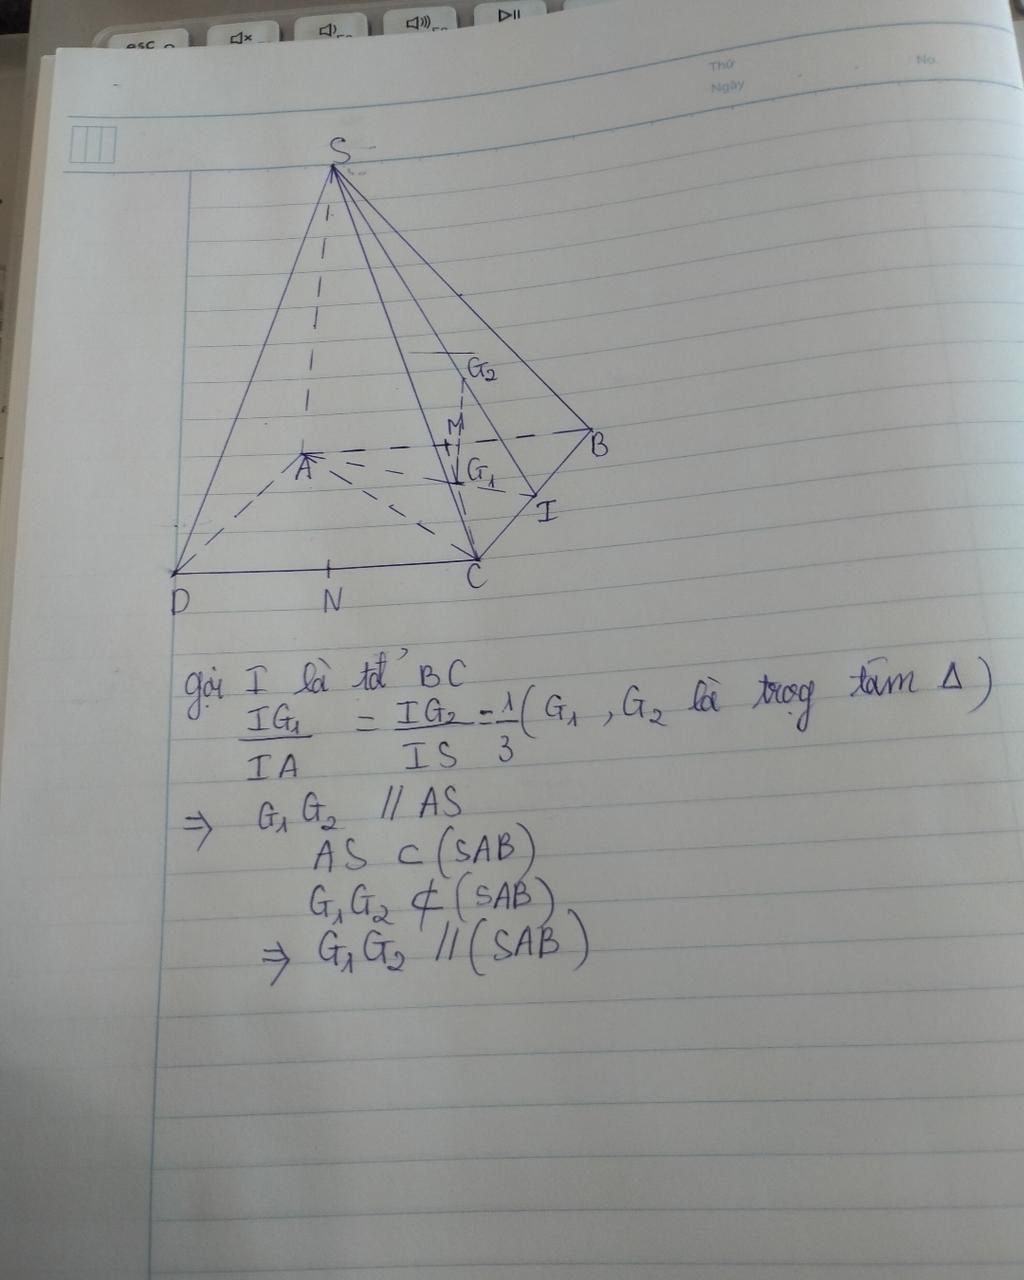 esc
Thứ
Ngày
No.
S
G₂
M
B
A
G₁
I
C
D
N
gọi I là tđ BC
IG₁/IA = IG₂/IS = 1/3 (G₁, G₂ là trọg tâm Δ)
⇒ G₁G₂ // AS
AS ⊂ (SAB)
G₁G₂ ⊄ (SAB)
⇒ G₁G₂ // (SAB)